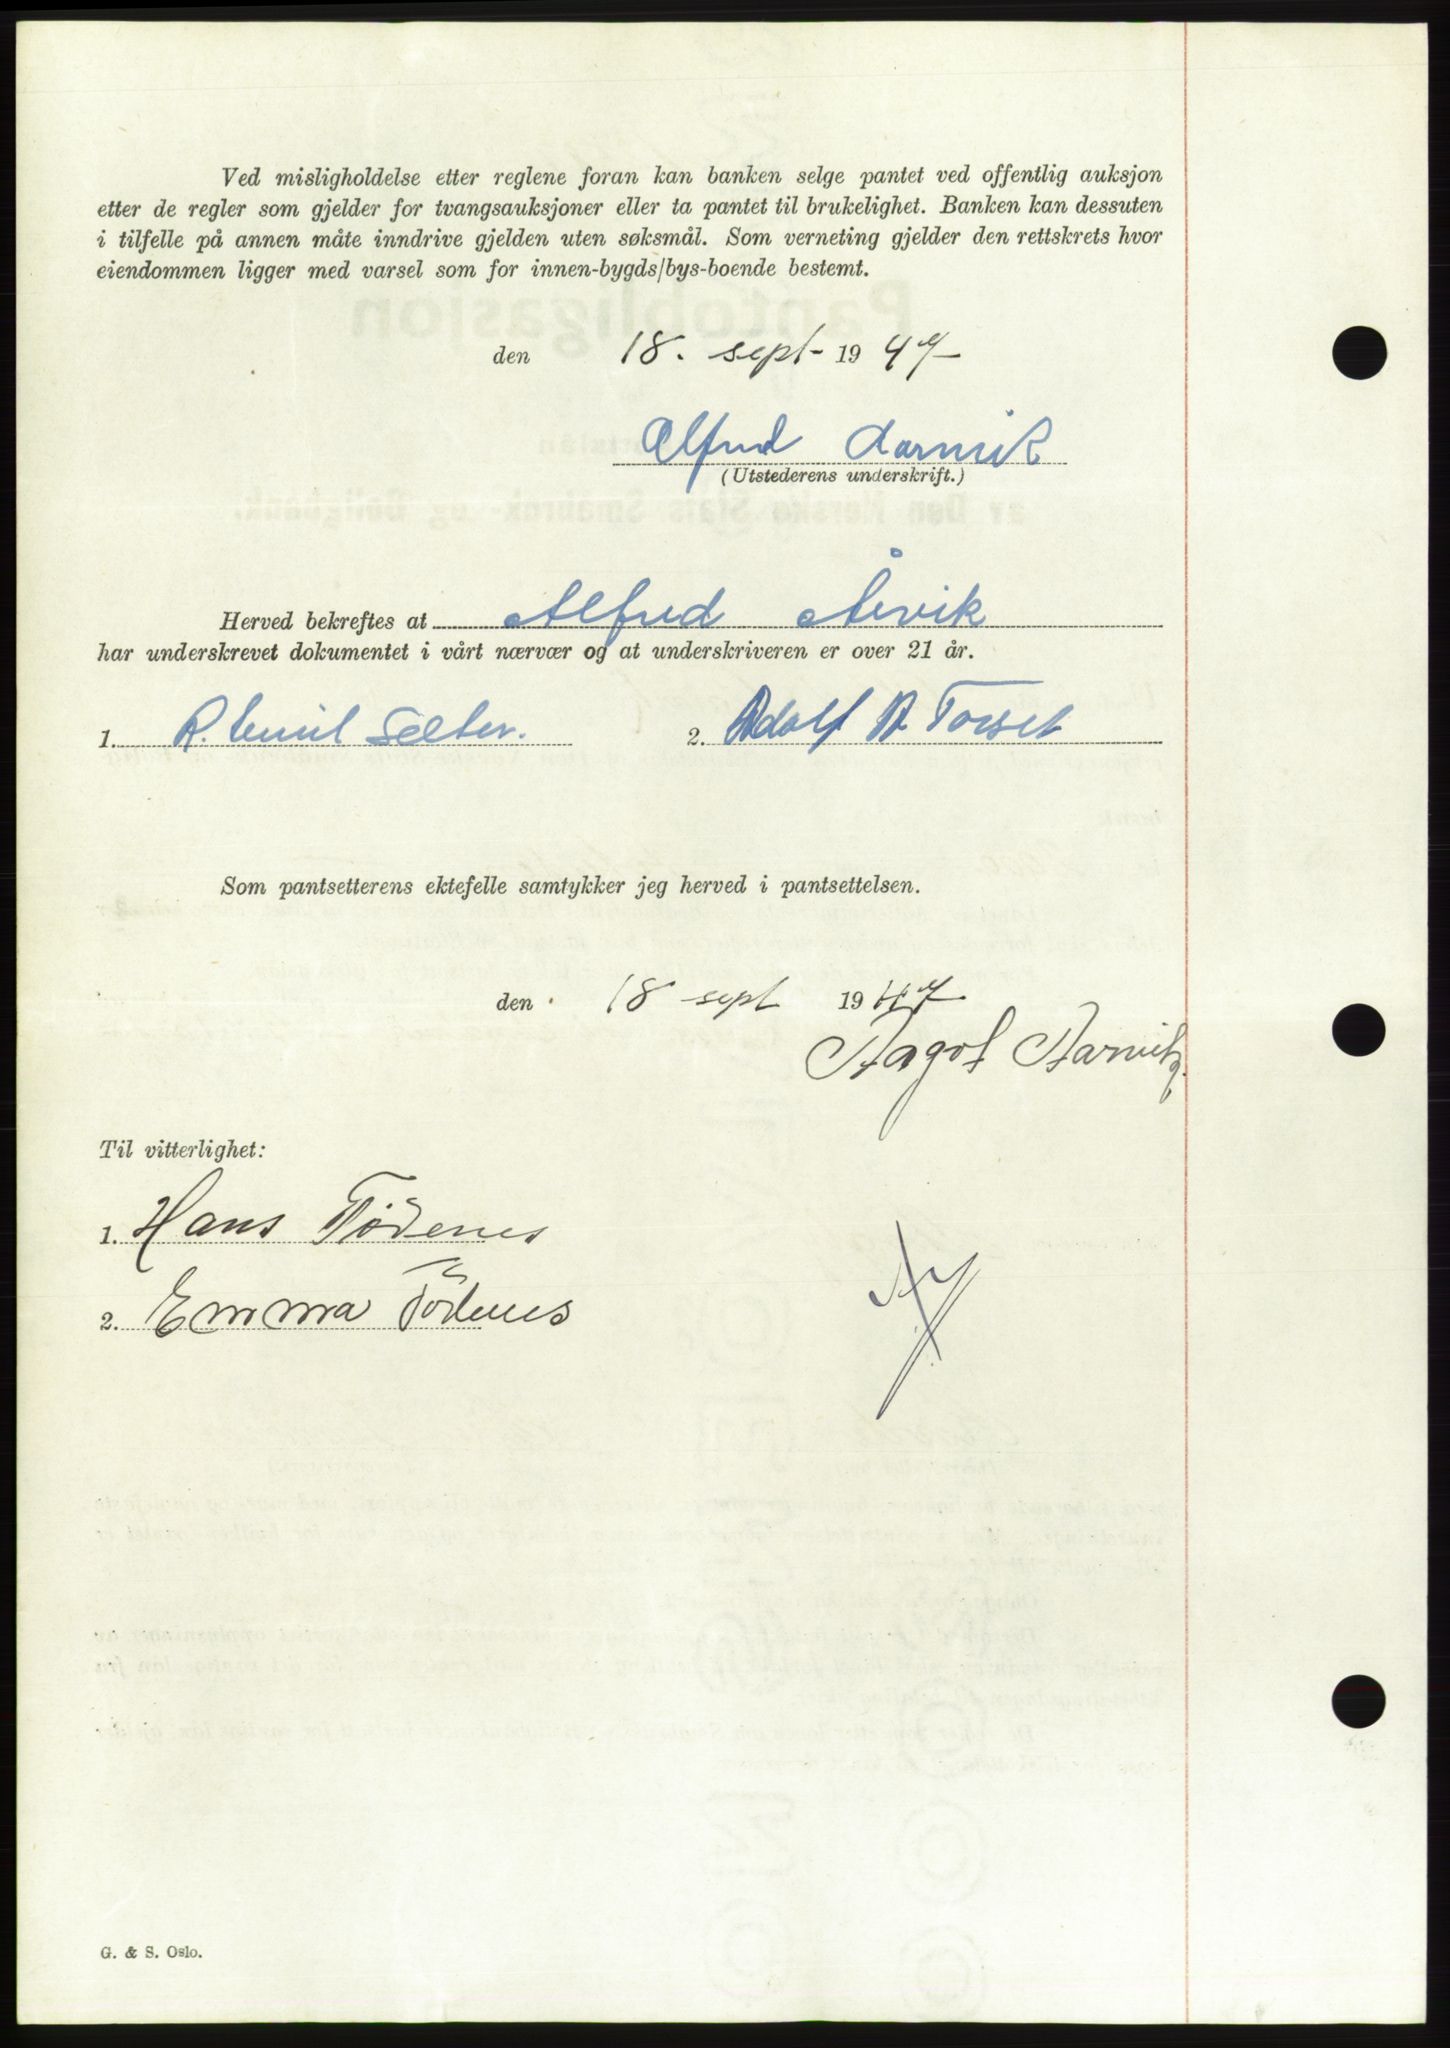 Ved misligholdelse etter reglene foran kan banken selge pantet ved offentlig auksjon
etter de regler som gjelder for tvangsauksjoner eller ta pantet til brukelighet. Banken kan dessuten
i tilfelle på annen måte inndrive gjelden uten søksmål. Som verneting gjelder den rettskrets hvor
eiendommen ligger med varsel som for innen-bygds/bys-boende bestemt.
den 18. sept- 1947
Alfred Aarvik
(Utstederens underskrift.)
Herved bekreftes at Alfred Årvik
har underskrevet dokumentet i vårt nærvær og at underskriveren er over 21 år.
1. R. Emil Sæter. 2. Adolf A Torset
Som pantsetterens ektefelle samtykker jeg herved i pantsettelsen.
den 18 sept 1947
Aagot Aarvik
Til vitterlighet:
1. Hans Tödenes
2. Emma Tödenes
G. & S. Oslo.